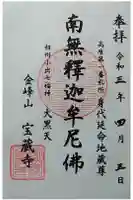 奉拝
令和三年四月五日
高座第一番札所
身代延命地蔵尊
南無釋迦牟尼佛
相州小出七福神
大黒天
金峰山
宝蔵寺